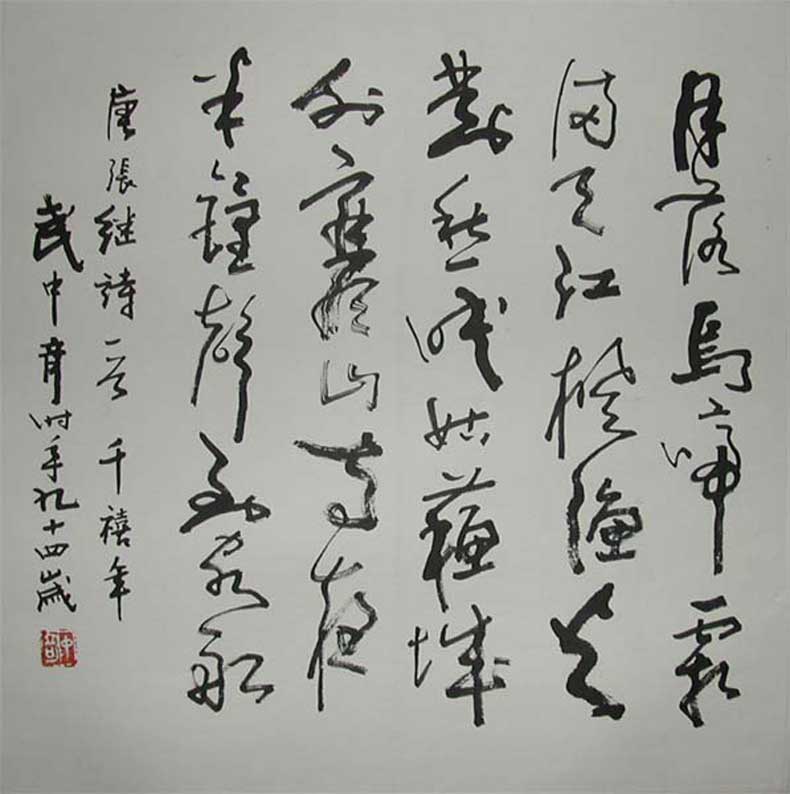 月落烏啼霜
滿天江楓漁火
對愁眠姑蘇城
外寒山寺夜
半鐘聲到客船
唐張继詩一首 千禧年
武中奇时年九十四歲